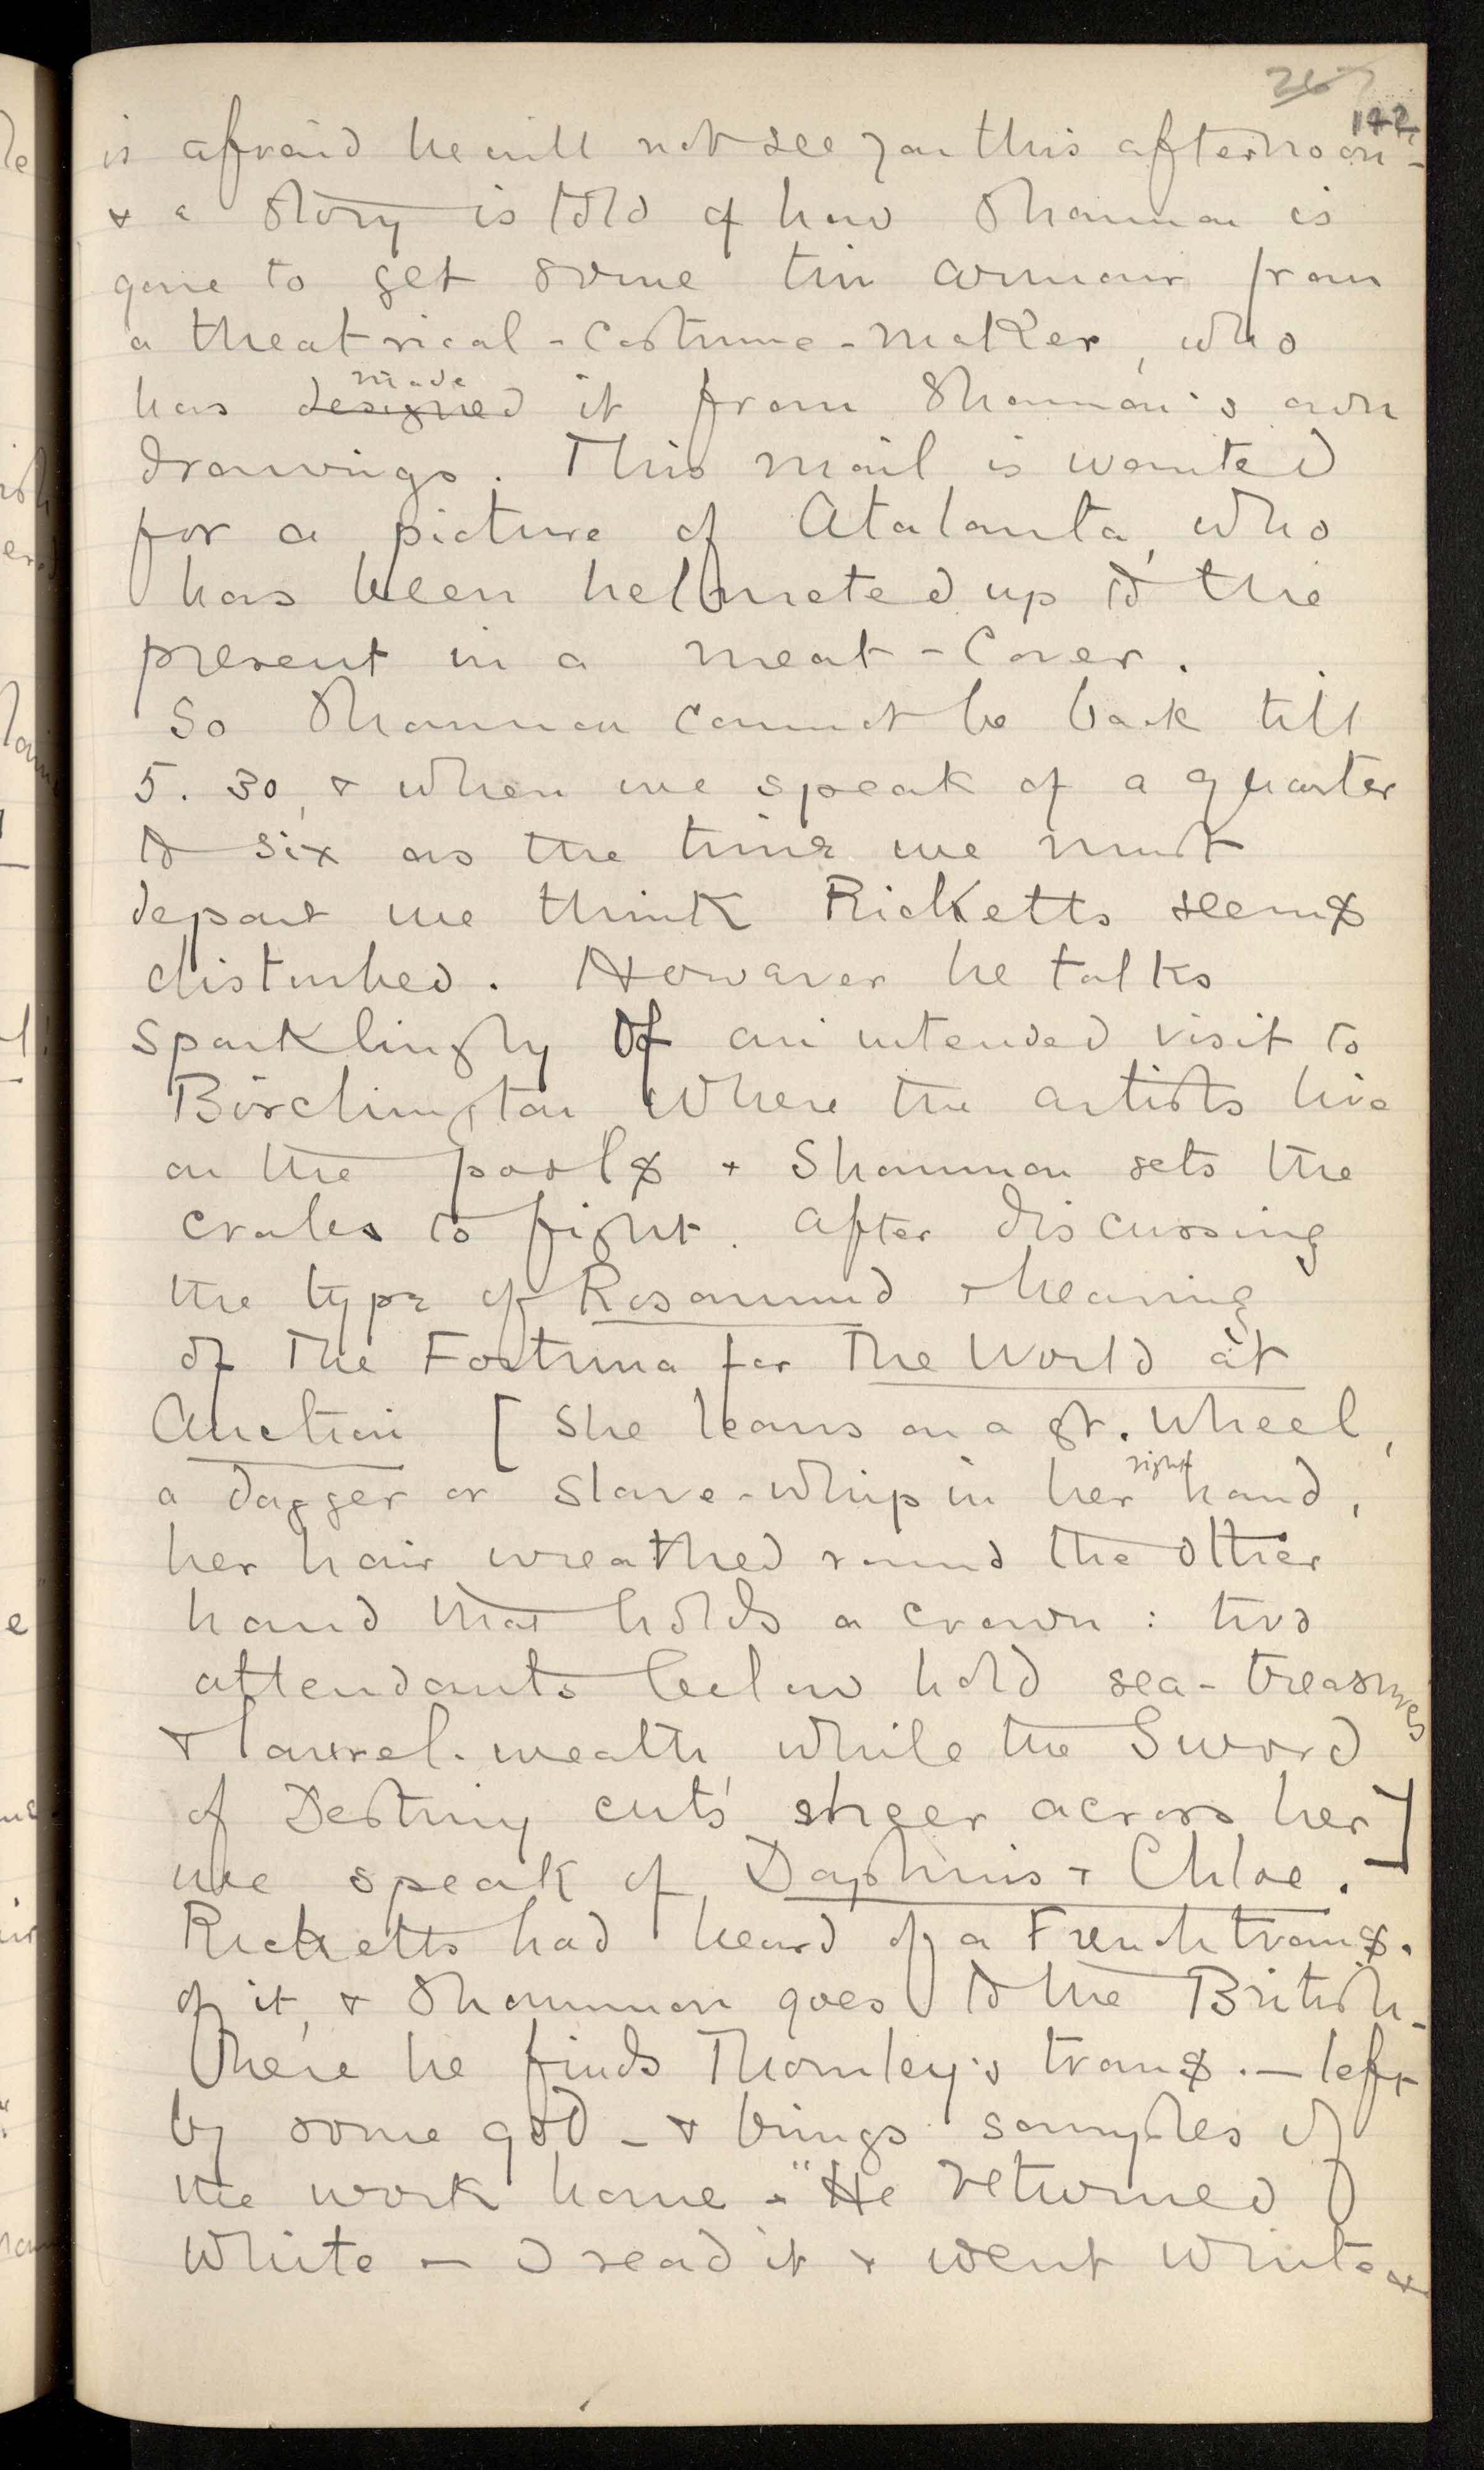 267
142
is afraid he will not see you this afternoon -
& a story is told of how Shannon is
gone to get some tin armour from
a theatrical - costume - maker, who
made
has designed it from Shannon's own
drawings. This mail is wanted
for a picture of Atalanta, who
has been helmeted up to the
present in a meat - cover.
So Shannon cannot be back till
5. 30, & when we speak of a quarter
to six as the time we must
depart we think Ricketts seems
disturbed. However he talks
sparklingly of an intended visit to
Birchington where the artists live
on the pools & Shannon sets the
crabs to fight. After discussing
the type of Rosamund & hearing
of the Fortuna for The World at
Auction [ She leans on a gt. wheel,
right
a dagger or slave-whip in her hand,
her hair wreathed round the other
hand that holds a crown : two
attendants below hold sea-treasures
& laurel-wealth while the Sword
of Destiny cuts sheer across her]
we speak of Daphnis & Chloe.
Ricketts had heard of a French trans.
of it, & Shannon goes to the British -
there he finds Thornley's trans. — left
by some god - & brings samples of
the work home - "He returned
white — I read it & went white &